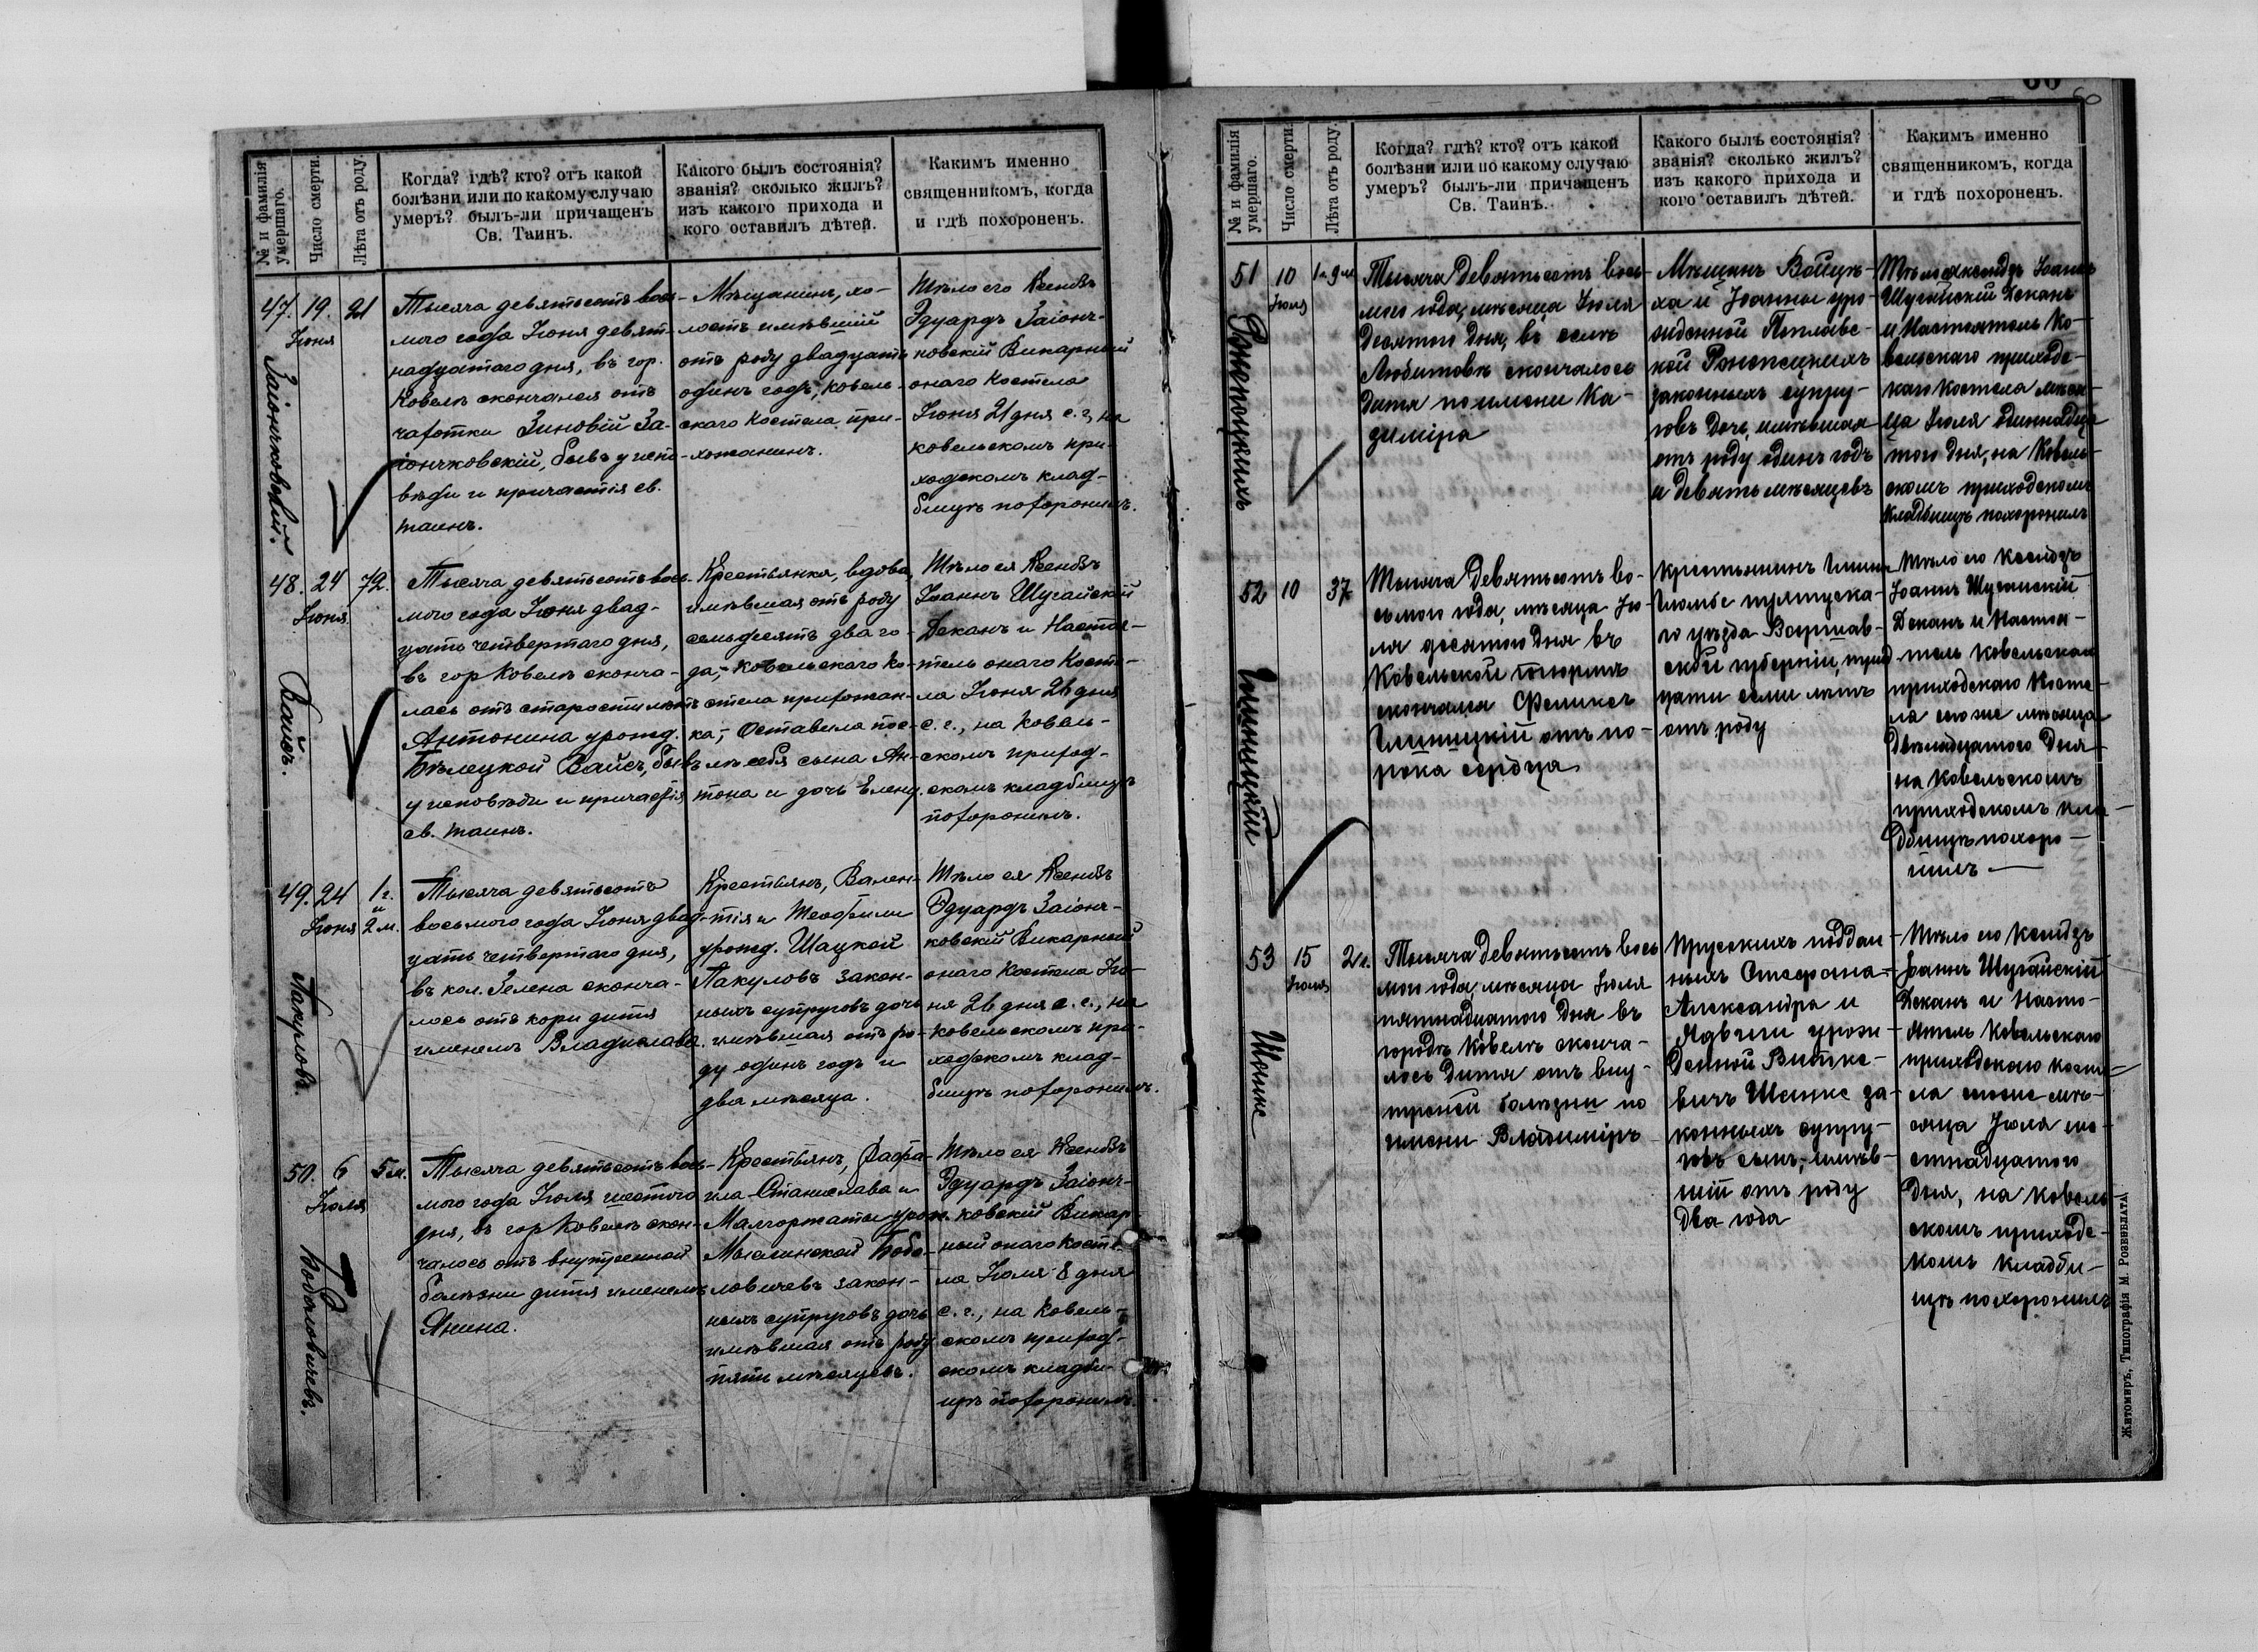 № и фамилія
умершаго.
Число смерти.
Лѣта отъ роду.
Когда? гдѣ? кто? отъ какой
болѣзни или по какому случаю
умеръ? былъ-ли причащенъ
Св. Таинъ.
Какого былъ состоянія?
званія? сколько жилъ?
изъ какого прихода и
кого оставилъ дѣтей.
Какимъ именно
священникомъ, когда
и гдѣ похороненъ.
47. 19. 21
Іюня
Заіончковскій.
Тысяча девятьсотъ вось-
мого года Іюня девят-
надцатаго дня, въ гор.
Ковелѣ скончался отъ
чахотки Зиновій За-
іончковскій, бывъ у испо-
вѣди и причастія св.
таинъ.
Мѣщанинъ, хо-
лостъ имѣвшій
отъ роду двадцать
одинъ годъ, ковель-
скаго Костела при-
хожанинъ.
Тѣло его Ксендзъ
Эдуардъ Заіонч-
ковскій Викарный
онаго Костела
Іюня 21 дня с. г., на
ковельскомъ при-
ходскомъ клад-
бищѣ похоронилъ.
48. 24 72.
Іюня
Вайсъ.
Тысяча девятьсотъ вось-
мого года Іюня двад-
цать четвертаго дня,
въ гор Ковелѣ сконча-
лась отъ старости лѣтъ
Антонина урожд.
Бѣлецкой Вайсъ, бывъ
у исповѣди и причастія
св. таинъ.
Крестьянка, вдова,
имѣвшая отъ роду
семьдесятъ два го-
да,- Ковельскаго Ко-
стела прихожан-
ка,- Оставила пос-
лѣ себя сына Ан-
тона и дочь Елену.
Тѣло ея Ксендзъ
Іоаннъ Шугайскій
Деканъ и Настоя-
тель онаго Косте-
ла Іюня 26 дня
с. г., на Ковель-
скомъ приход-
скомъ кладбищѣ
похоронилъ.
49. 24 1 г.
и
Іюня 2 м.
Пакуловъ.
Тысяча девятьсотъ
восьмого года Іюня двад-
цать четвертаго дня,
въ кол. Зелена сконча-
лось отъ кори дитя
именемъ Владислава.
Крестьянъ, Вален-
тія и Теофили
урожд. Шацкой
Пакуловъ закон-
ныхъ супруговъ дочь
имѣвшая отъ ро-
ду одинъ годъ и
два мѣсяца.
Тѣло ея Ксендзъ
Эдуардъ Заіонч-
ковскій Викарный
онаго Костела Ію-
ня 26 дня с. г., на
ковельскомъ при-
ходскомъ клад-
бищѣ похоронилъ.
50. 6 5 м.
Іюля
Бобаловичевъ.
Тысяча девятьсотъ вось-
мого года Іюля шестого
дня, въ гор Ковелѣ скон-
чалось отъ внутренной
болѣзни дитя именемъ
Янина.
Крестьянъ, Рафа-
ила-Станислава и
Малгоржаты урож.
Мыслинской Боба-
ловичевъ закон-
ныхъ супруговъ дочь
имѣвшая отъ роду
пять мѣсяцевъ.
Тѣло ея Ксендзъ
Эдуардъ Заіонч-
ковскій Викар-
ный онаго Косте-
ла Іюля 8 дня
с. г., на Ковель-
скомъ приход-
скомъ кладби-
щѣ похоронилъ.
60
№ и фамилія
умершаго.
Число смерти.
Лѣта отъ роду.
Когда? гдѣ? кто? отъ какой
болѣзни или по какому случаю
умеръ? былъ-ли причащенъ
Св. Таинъ.
Какого былъ состоянія?
званія? сколько жилъ?
изъ какого прихода и
кого оставилъ дѣтей.
Какимъ именно
священникомъ, когда
и гдѣ похороненъ.
51 10 1 г. 9 м
Іюля
Тысяча девятьсотъ вось-
мого года, мѣсяца Іюля
десятого дня, въ селѣ
Любитовѣ скончалось
дитя по имени Ка-
зиміра
Мѣщанъ Войцѣ-
ха и Іоанны уро-
жденной Поплавс-
кой
законныхъ супру-
говъ дочь, имѣвшая
отъ роду одинъ годъ
и девять мѣсяцевъ
Тѣло ея ксендзъ Іоаннъ
Шугайскій Деканъ
и Настоятель Ко-
вельскаго приходс-
каго костела мѣся-
ца Іюля одиннадца
того дня, на Ковель-
скомъ приходскомъ
кладбищѣ похоронилъ
52 10 37
Глиницкій
Тысяча девятьсотъ во-
сьмого года, мѣсяца Ію-
ля десятого дня въ
Ковельской тюрьмѣ
скончался Феликсъ
Глиницкій отъ по-
рока сердца
Крестьянинъ гмины
пултуска-
го уѣзда Варшав-
ской губерніи, трид
цати семи лѣтъ
отъ роду
Тѣло его Ксендзъ
Іоаннъ Шугайскій
Деканъ и Настоя-
тель Ковельскаго
приходскаго Косте-
ла сегоже мѣсяца
двѣнадцатого дня
на Ковельскомъ
приходскомъ кла-
дбищѣ похоро-
нилъ
53 15 2 г.
Іюля
Шенке
Тысяча девятьсотъ вось
мого года, мѣсяца Іюля
пятнадцатого дня въ
городѣ Ковелѣ сконча-
лось дитя отъ вну-
тренней болѣзни по
имени Владиміръ
Прусскихъ поддан-
ныхъ Стефана-
Александра и
Ядвиги урож-
денной Витке-
вичъ Шенке за-
конныхъ супру-
говъ сынъ, имѣв-
шій отъ роду
два года
Тѣло его Ксендзъ
Іоаннъ Шугайскій
Деканъ и Насто-
ятель Ковельскаго
приходскаго косте-
ла сегоже мѣ-
сяца Іюля ше-
стнадцатого
дня, на Ковель-
скомъ приходс-
комъ кладби-
щѣ похоронилъ
Житомиръ, Типографія М. Розенблата